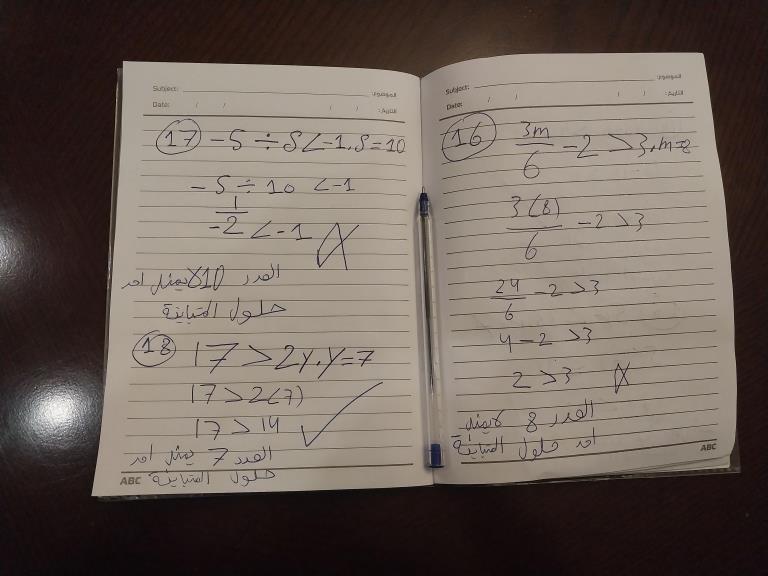 Subject:
الموضوع:
Date: / /
/ / التاريخ:
17 -5 ÷ S < -1, S = 10
-5 ÷ 10 < -1
1
-2 < -1 X
العدد 10 لا يمثل احد
حلول المتباينة
18 17 > 2y, y = 7
17 > 2(7)
17 > 14 ✓
العدد 7 يمثل احد
حلول المتباينة
ABC
Subject:
الموضوع:
Date: / /
/ / التاريخ:
16 3m/6 - 2 > 3, m = 8
3(8)/6 - 2 > 3
24/6 - 2 > 3
4 - 2 > 3
2 > 3 X
العدد 8 لا يمثل
احد حلول المتباينة
ABC